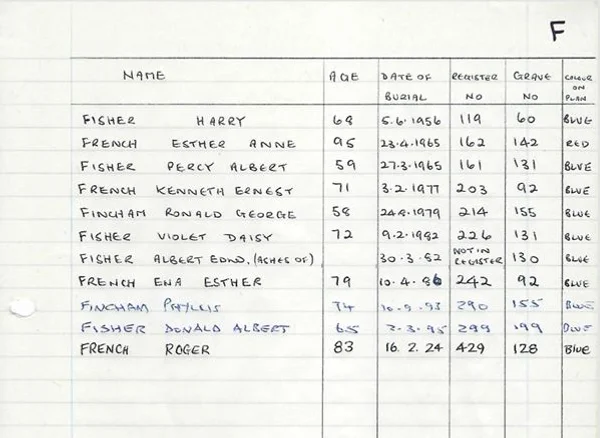 F
NAME AGE DATE OF BURIAL REGISTER NO GRAVE NO COLOUR ON PLAN
FISHER HARRY 68 5.6.1956 119 60 BLUE
FRENCH ESTHER ANNE 95 23.4.1965 162 142 RED
FISHER PERCY ALBERT 59 27.3.1965 161 131 BLUE
FRENCH KENNETH ERNEST 71 3.2.1977 203 92 BLUE
FINCHAM RONALD GEORGE 58 24.8.1979 214 155 BLUE
FISHER VIOLET DAISY 72 9.2.1982 226 131 BLUE
FISHER ALBERT EDWD. (ASHES OF) 30.3.82 NOT IN REGISTER 130 BLUE
FRENCH ENA ESTHER 79 10.4.86 242 92 BLUE
FINCHAM PHYLLIS 74 290 155 BLUE
FISHER DONALD ALBERT 65 299 199 BLUE
FRENCH ROGER 83 16.2.24 429 128 Blue